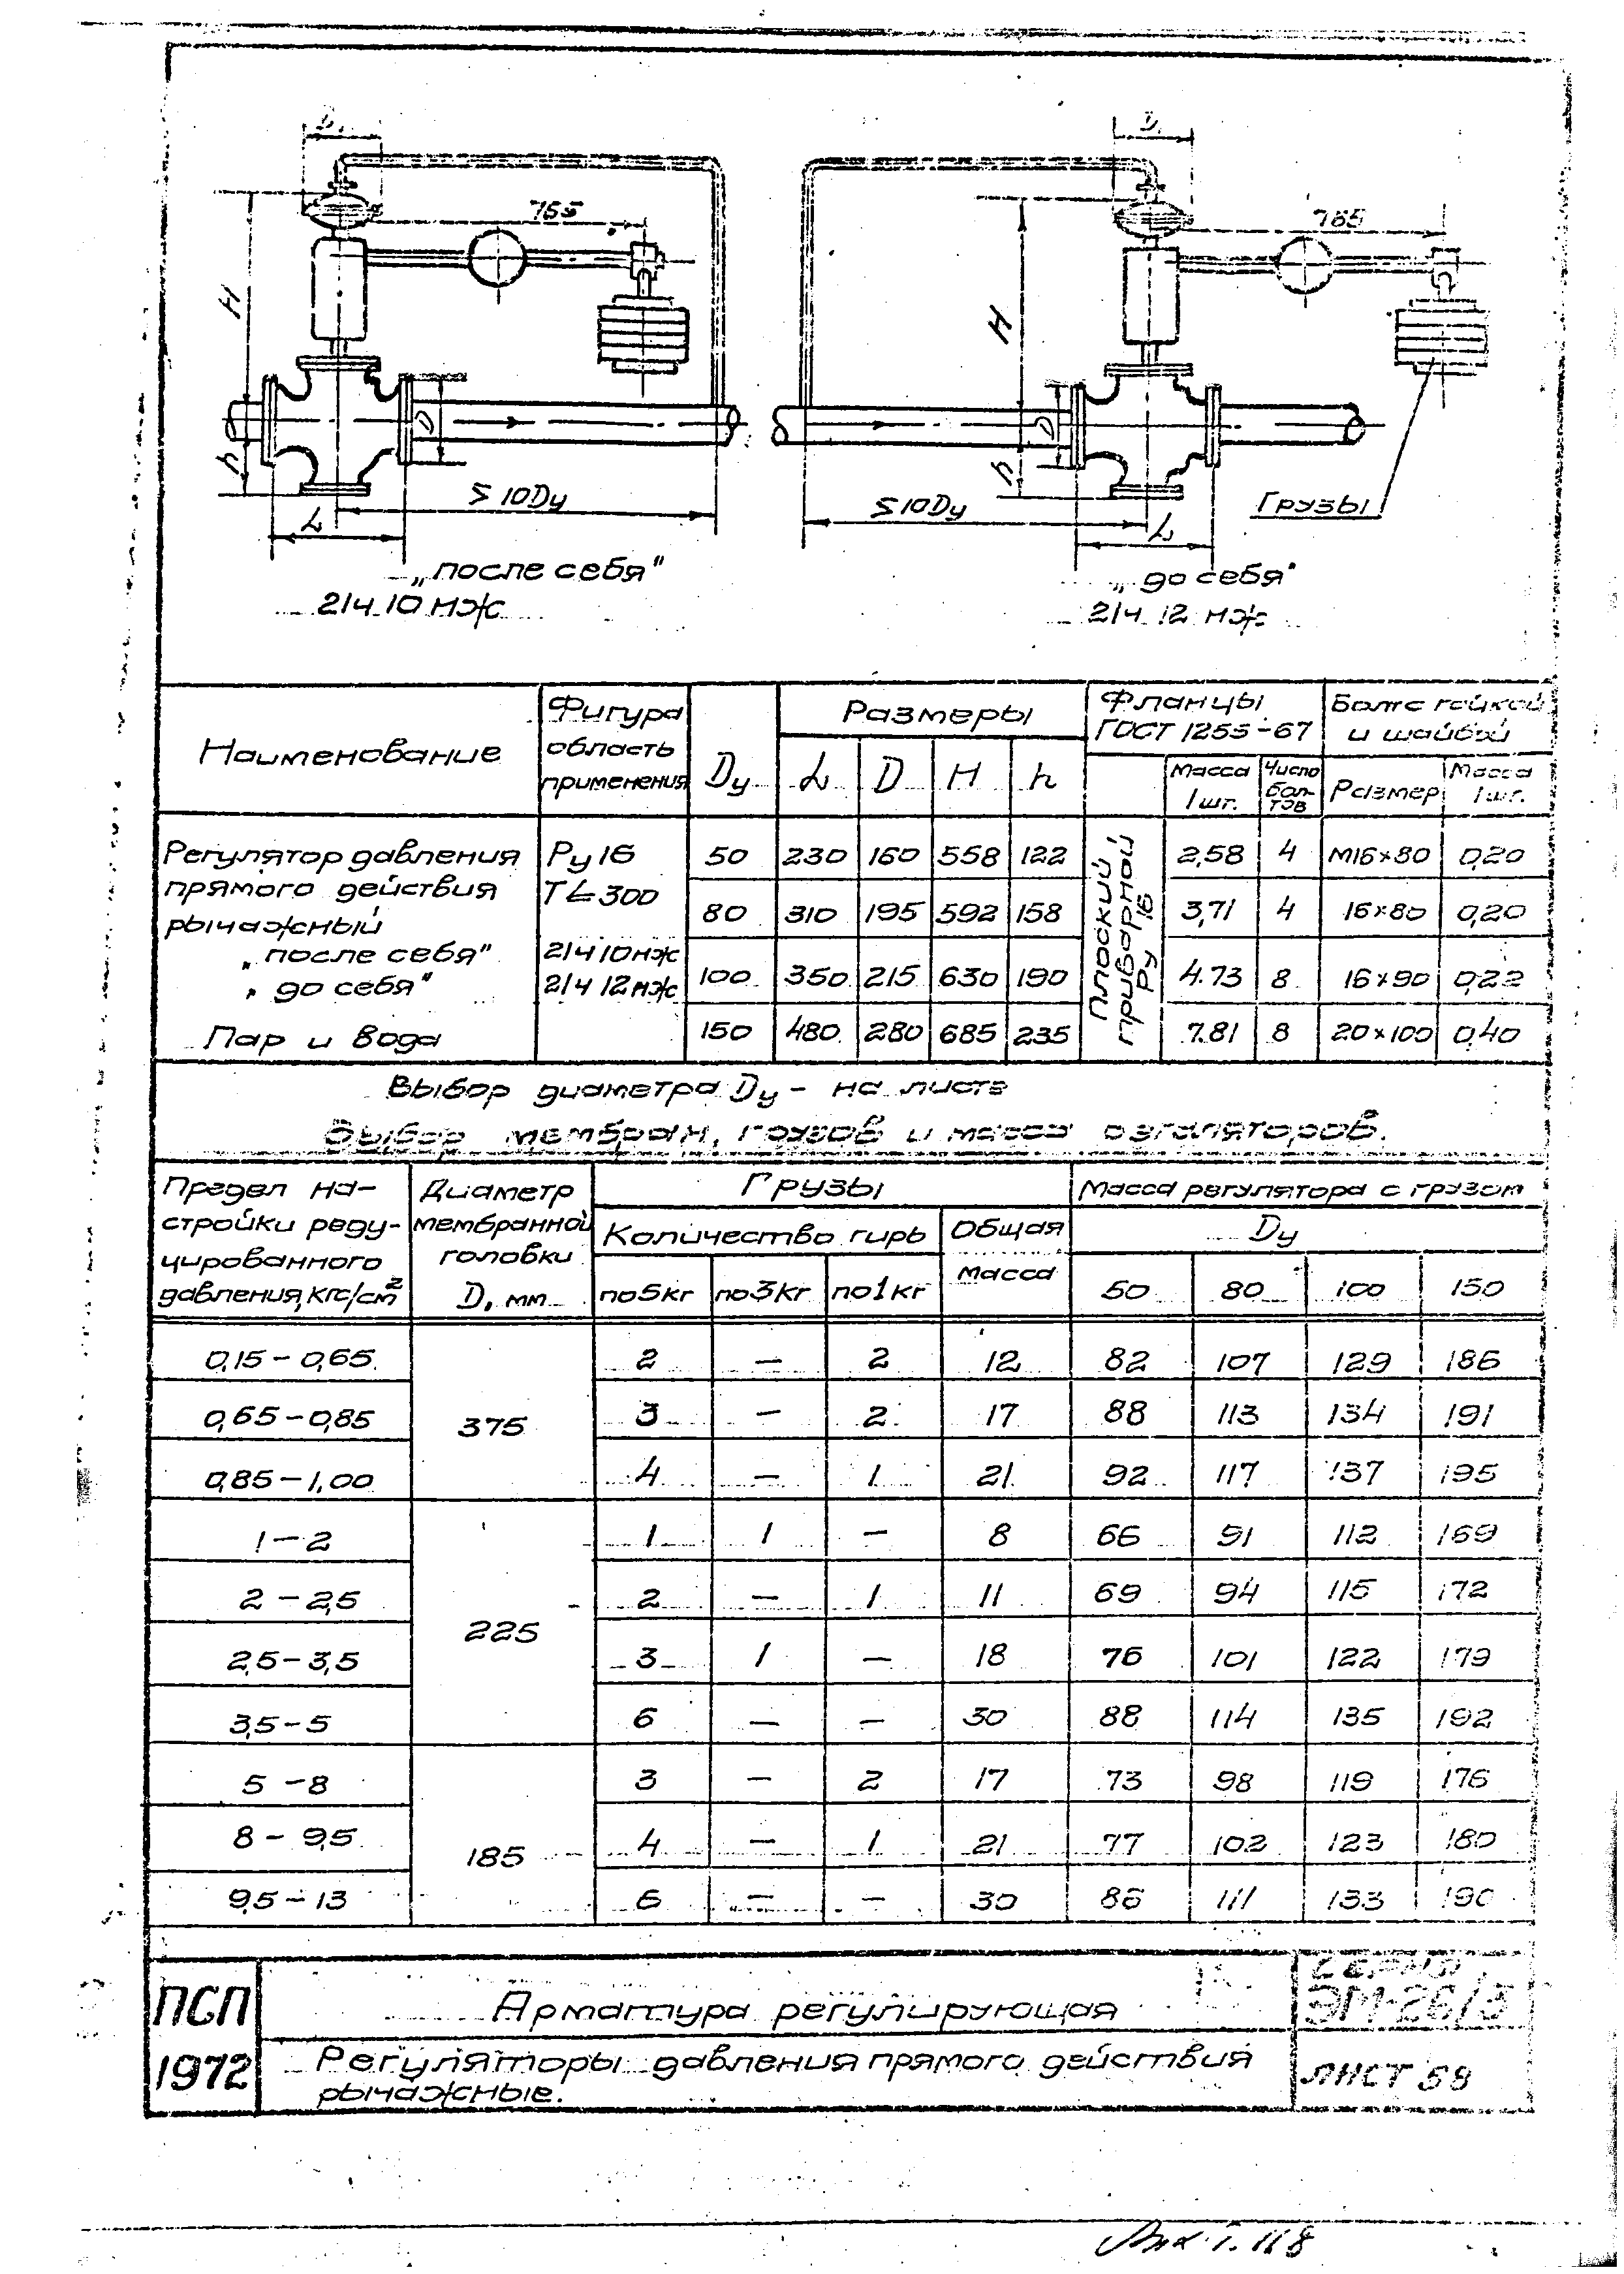 D₁ D₁
765 765
H H
h h
D D
≤ 10Dу ≤ 10Dу
L L
Грузы
„после себя" „до себя"
21ч 10 нж 21ч 12 нж
Наименование | Фигура область применения | Dу | Размеры | Фланцы ГОСТ 1255-67 | Болт с гайкой и шайбой
L | D | H | h | Масса 1шт. | Число болтов | Размер | Масса 1шт.
Регулятор давления | Ру 16 | 50 | 230 | 160 | 558 | 122 | Плоский приварной Ру 16 | 2,58 | 4 | М16×80 | 0,20
прямого действия | Т ≤ 300
рычажный | 80 | 310 | 195 | 592 | 158 | 3,71 | 4 | 16×80 | 0,20
„после себя" | 21ч 10нж
„до себя" | 21ч 12нж | 100 | 350 | 215 | 630 | 190 | 4.73 | 8 | 16×90 | 0,22
Пар и вода | 150 | 480 | 280 | 685 | 235 | 7.81 | 8 | 20×100 | 0,40
Выбор диаметра Dу - на листе
Выбор мембран, грузов и масса регуляторов.
Предел настройки редуцированного давления, кгс/см² | Диаметр мембранной головки D₁ мм | Грузы | Масса регулятора с грузом
Количество гирь | Общая масса | Dу
по 5кг | по 3кг | по 1кг | 50 | 80 | 100 | 150
0,15 - 0,65 | 375 | 2 | — | 2 | 12 | 82 | 107 | 129 | 186
0,65 - 0,85 | 3 | — | 2 | 17 | 88 | 113 | 134 | 191
0,85 - 1,00 | 4 | — | 1 | 21 | 92 | 117 | 137 | 195
1 - 2 | 225 | 1 | 1 | — | 8 | 66 | 91 | 112 | 169
2 - 2,5 | 2 | — | 1 | 11 | 69 | 94 | 115 | 172
2,5 - 3,5 | 3 | 1 | — | 18 | 76 | 101 | 122 | 179
3,5 - 5 | 6 | — | — | 30 | 88 | 114 | 135 | 192
5 - 8 | 185 | 3 | — | 2 | 17 | 73 | 98 | 119 | 176
8 - 9,5 | 4 | — | 1 | 21 | 77 | 102 | 123 | 180
9,5 - 13 | 6 | — | — | 30 | 86 | 111 | 133 | 190
ПСП | Арматура регулирующая | Серия ЭМ-26/3
1972 | Регуляторы давления прямого действия рычажные. | Лист 58